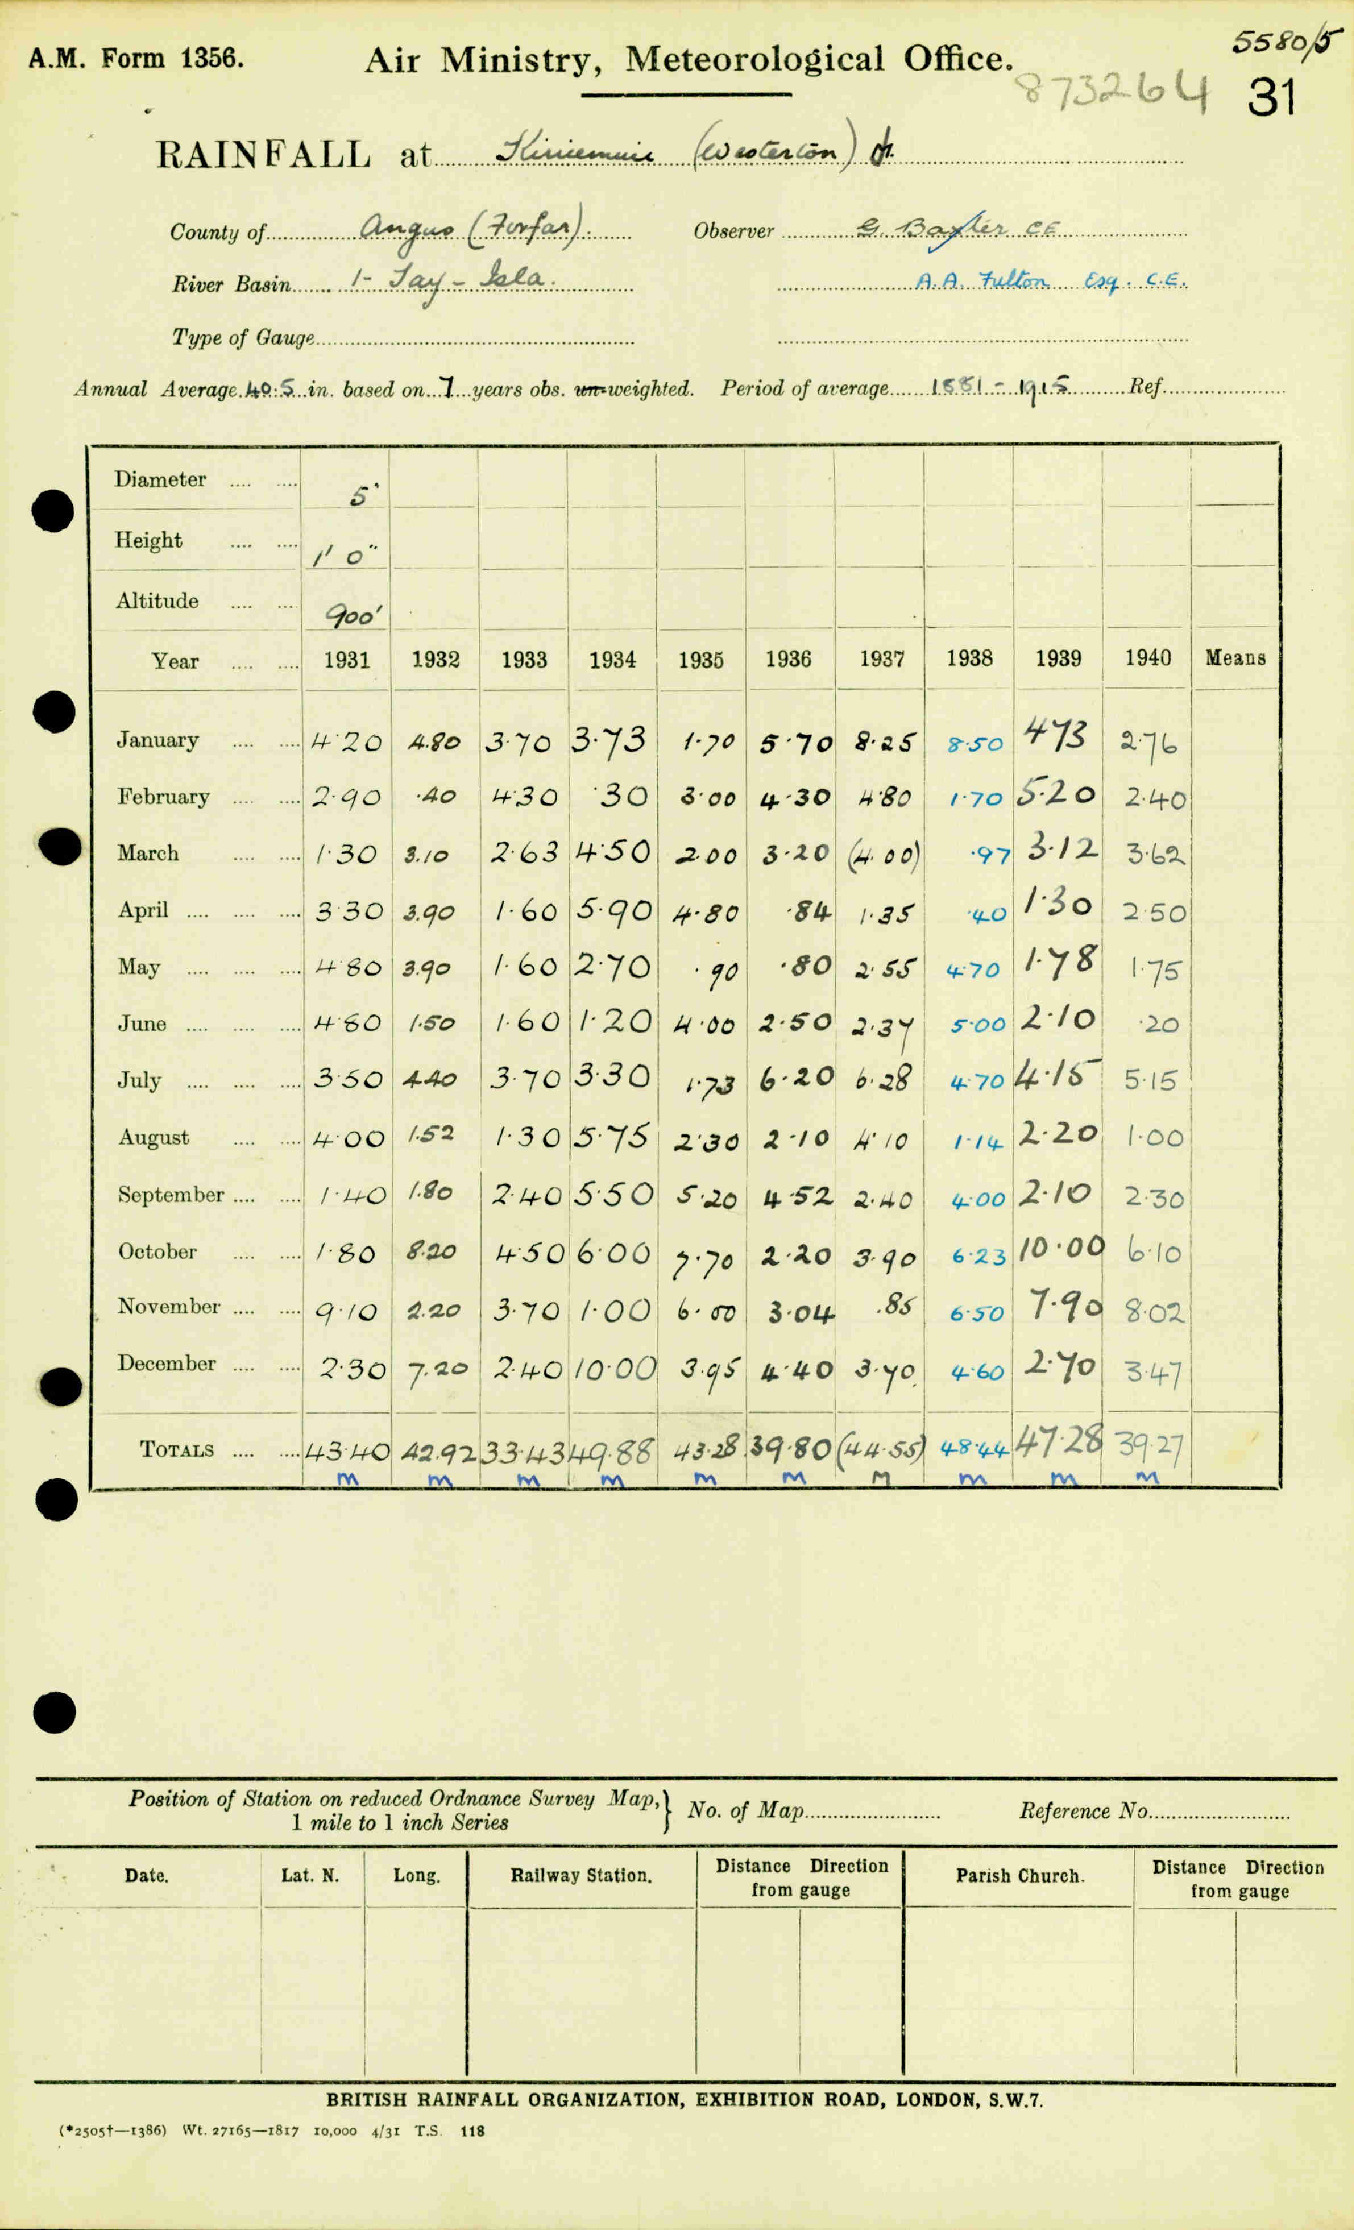 A.M. Form 1356.
Air Ministry, Meteorological Office.
5580/5
873264
31
RAINFALL at Kirriemuir (Westerton)
County of Angus (Forfar). Observer G. Baxter CE
River Basin 1- Tay - Isla. A.A. Fulton Esq. C.E.
Type of Gauge
Annual Average 40.5 in. based on 7 years obs. un-weighted. Period of average 1881 - 1915 Ref.
Diameter 5"
Height 1' 0"
Altitude 900'
Year 1931 1932 1933 1934 1935 1936 1937 1938 1939 1940 Means
January 4.20 4.80 3.70 3.73 1.70 5.70 8.25 8.50 4.73 2.76
February 2.90 .40 4.30 .30 3.00 4.30 4.80 1.70 5.20 2.40
March 1.30 3.10 2.63 4.50 2.00 3.20 (4.00) .97 3.12 3.62
April 3.30 3.90 1.60 5.90 4.80 .84 1.35 .40 1.30 2.50
May 4.80 3.90 1.60 2.70 .90 .80 2.55 4.70 1.78 1.75
June 4.80 1.50 1.60 1.20 4.00 2.50 2.37 5.00 2.10 .20
July 3.50 4.40 3.70 3.30 1.73 6.20 6.28 4.70 4.15 5.15
August 4.00 1.52 1.30 5.75 2.30 2.10 4.10 1.14 2.20 1.00
September 1.40 1.80 2.40 5.50 5.20 4.52 2.40 4.00 2.10 2.30
October 1.80 8.20 4.50 6.00 7.70 2.20 3.90 6.23 10.00 6.10
November 9.10 2.20 3.70 1.00 6.00 3.04 .85 6.50 7.90 8.02
December 2.30 7.20 2.40 10.00 3.95 4.40 3.70 4.60 2.70 3.47
TOTALS 43.40 42.92 33.43 49.88 43.28 39.80 (44.55) 48.44 47.28 39.27
m m m m m m M m m m
Position of Station on reduced Ordnance Survey Map, } No. of Map Reference No.
1 mile to 1 inch Series
Date. Lat. N. Long. Railway Station. Distance Direction from gauge Parish Church. Distance Direction from gauge
BRITISH RAINFALL ORGANIZATION, EXHIBITION ROAD, LONDON, S.W.7.
(*2505†—1386) Wt. 27165—1817 10,000 4/31 T.S. 118